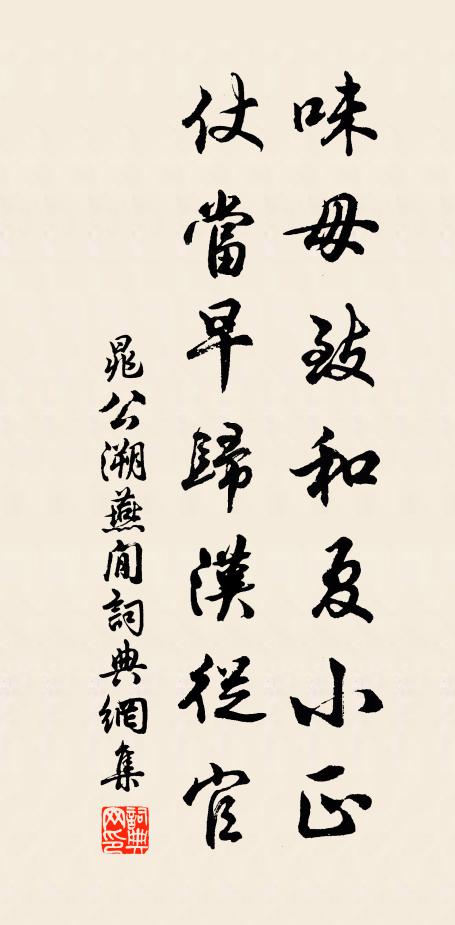 味毋致和夏小正
仗當早歸漢從官
晁公溯燕閒詞典網集
詞典網印